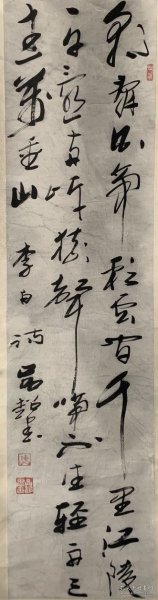 朝辭白帝彩云間千里江陵
一日還兩岸猿聲啼不住輕舟已
過萬重山 李白詩